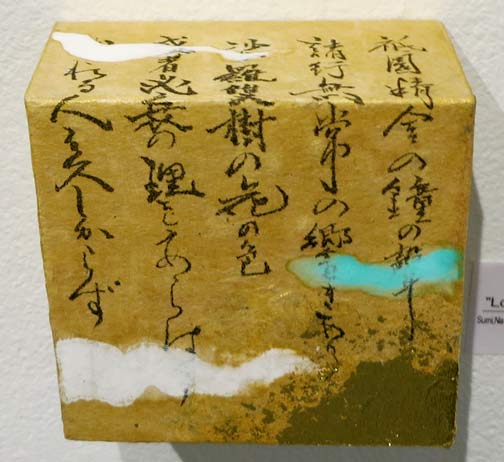 祇園精舎の鐘の聲
諸行無常の響きあり
沙羅雙樹の花の色
盛者必衰の理をあらは
れる人も久しからず
Sumi,Na